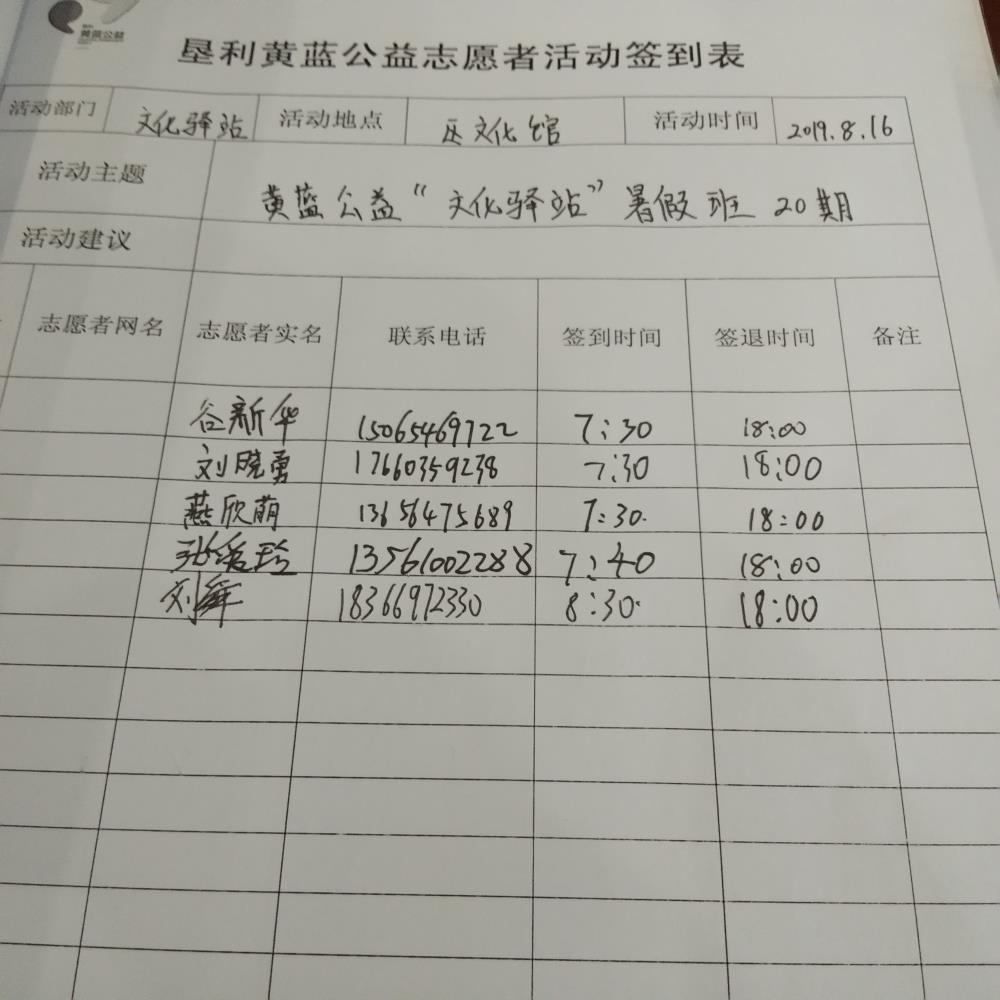 黄蓝公益
垦利黄蓝公益志愿者活动签到表
活动部门 文化驿站 活动地点 区文化馆 活动时间 2019.8.16
活动主题 黄蓝公益“文化驿站”暑假班 20期
活动建议
志愿者网名 志愿者实名 联系电话 签到时间 签退时间 备注
谷新华 15065469722 7:30 18:00
刘晓勇 17660359238 7:30 18:00
燕欣萌 13656475689 7:30. 18:00
张 13561002288 7:40 18:00
刘 18366972330 8:30. 18:00